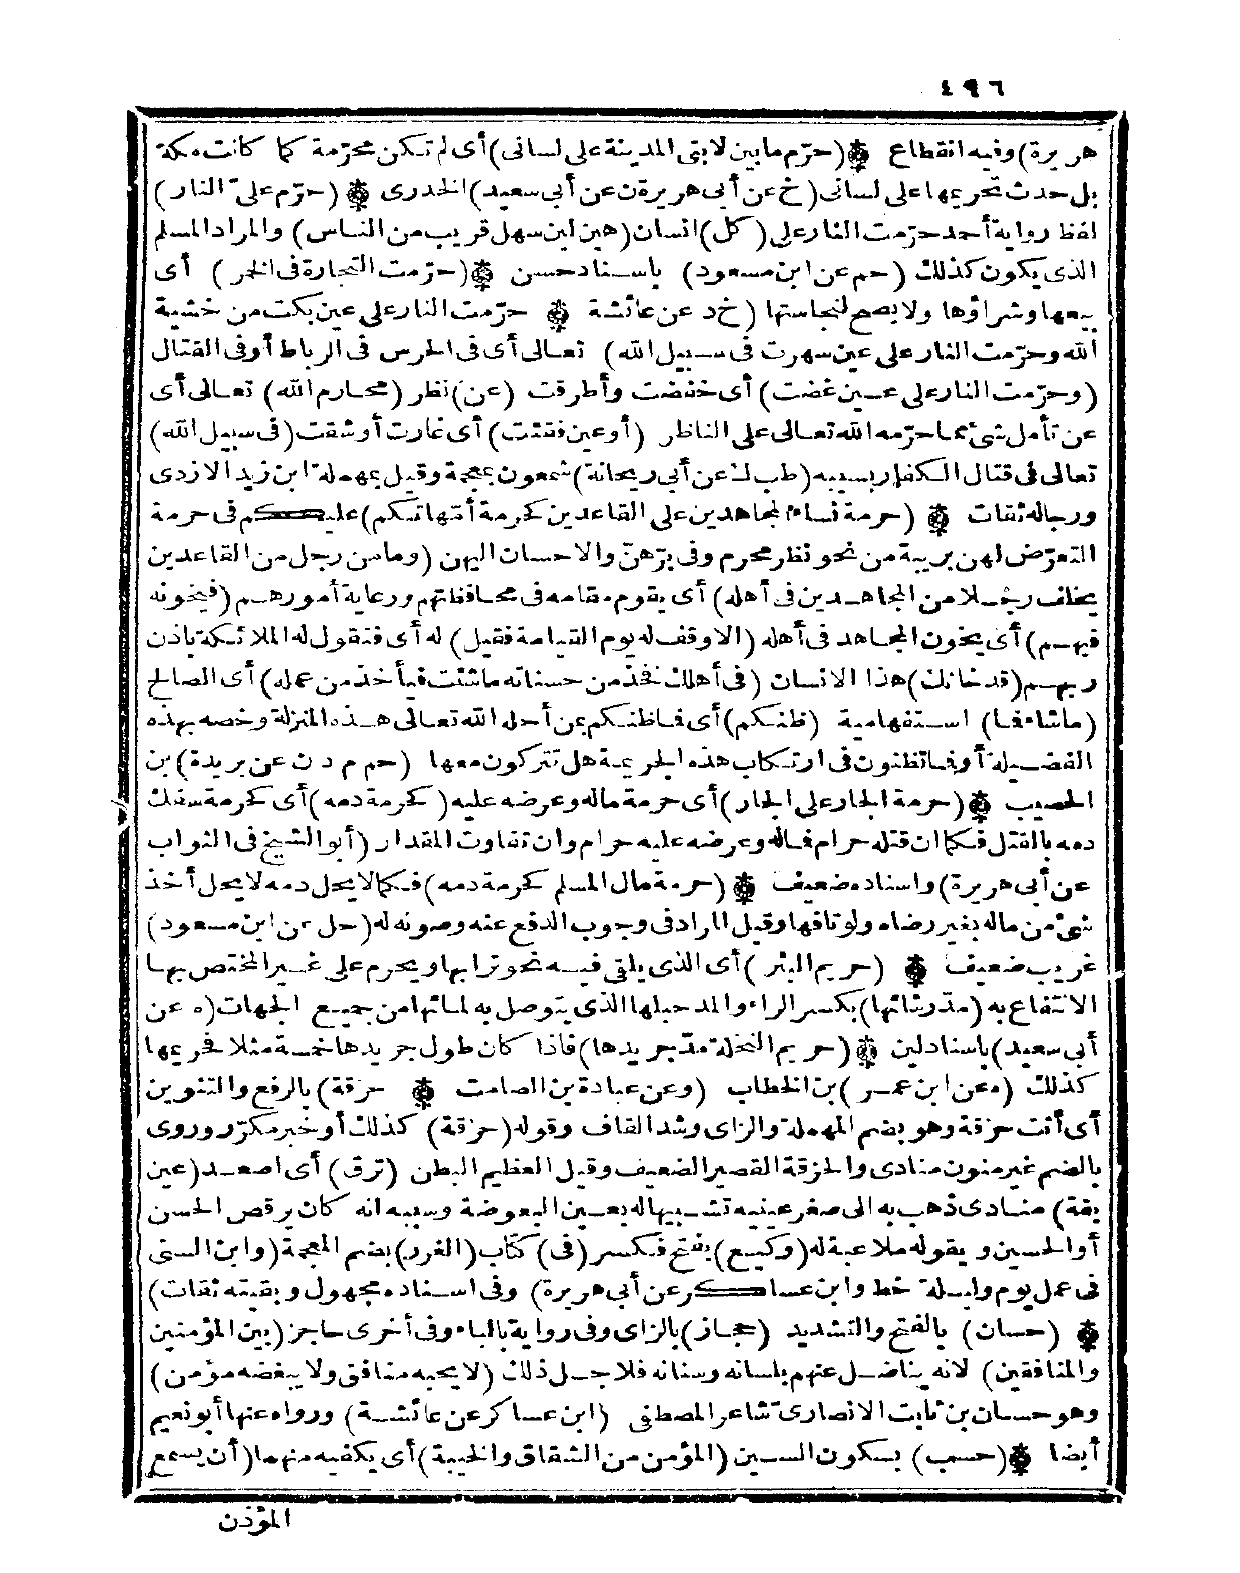 ٤٩٦
هريرة) وفيه انقطاع ۞ (حرّم ما بين لابتى المدينة على لسانى) أى لم تكن محرّمة كما كانت مكة
بل حدث تحريمها على لسانى (خ عن أبى هريرة ن عن أبى سعيد) الخدرى ۞ (حرّم على النار)
لفظ رواية أحمد حرّمت النار على (كل) انسان (هين لين سهل قريب من الناس) والمراد المسلم
الذى يكون كذلك (حم عن ابن مسعود) باسناد حسن ۞ (حرّمت التجارة فى الخمر) أى
بيعها وشراؤها ولا يصح لنجاستها (خ د عن عائشة ۞ حرّمت النار على عين بكت من خشية
الله وحرّمت النار على عين سهرت فى سبيل الله) تعالى أى فى الحرس فى الرباط أو فى القتال
(وحرّمت النار على عين غضت) أى خفضت وأطرقت (عن) نظر (محارم الله) تعالى أى
عن تأمل شئ مما حرّمه الله تعالى على الناظر (أو عين فقئت) أى غارت أو شقت (فى سبيل الله)
تعالى فى قتال الكفار بسببه (طب ك عن أبى ريحانة) شمعون بمعجمة وقيل بمهملة ابن زيد الازدى
ورجاله ثقات ۞ (حرمة نساء المجاهدين على القاعدين كحرمة أمّهاتكم) عليكم فى حرمة
التعرّض لهن بريبة من نحو نظر محرم وفى برّهنّ والاحسان اليهن (وما من رجل من القاعدين
يخلف رجلا من المجاهدين فى أهله) أى يقوم مقامه فى محافظتهم ورعاية أمورهم (فيخونه
فيهم) أى يخون المجاهد فى أهله (الا وقف له يوم القيامة فقيل) له أى فتقول له الملائكة باذن
ربهم (قد خانك) هذا الانسان (فى أهلك فخذ من حسناته ما شئت فيأخذ من عمله) أى الصالح
(ما شاء فما) استفهامية (ظنكم) أى فما ظنكم بمن أحله الله تعالى هذه المنزلة وخصه بهذه
الفضيلة أو فما تظنون فى ارتكاب هذه الجريمة هل تتركون معها (حم م د ن عن بريدة) بن
الحصيب ۞ (حرمة الجار على الجار) أى حرمة ماله وعرضه عليه (كحرمة دمه) أى كحرمة سفك
دمه بالقتل فكما ان قتله حرام فماله وعرضه عليه حرام وان تفاوت المقدار (أبو الشيخ فى الثواب
عن أبى هريرة) واسناده ضعيف ۞ (حرمة مال المسلم كحرمة دمه) فكما لا يحل دمه لا يحل أخذ
شئ من ماله بغير رضاه ولو تافها وقيل المراد فى وجوب الدفع عنه وصونه له (حل عن ابن مسعود)
غريب ضعيف ۞ (حريم البئر) أى الذى يلقى فيه نحو ترابها ويحرم على غير المختص بها
الانتفاع به (مدّ رشائها) بكسر الراء والمد حبلها الذى يتوصل به لمائها من جميع الجهات (ه عن
أبى سعيد) باسناد لين ۞ (حريم النخلة مدّ جريدها) فاذا كان طول جريدها خمسة مثلا فحريمها
كذلك (ه عن ابن عمر) بن الخطاب (وعن عبادة بن الصامت ۞ حزقة) بالرفع والتنوين
أى أنت حزقة وهو بضم المهملة والزاى وشد القاف وقوله (حزقة) كذلك أو خبر مكرّر وروى
بالضم غير منون منادى والحزقة القصير الضعيف وقيل العظيم البطن (ترق) أى اصعد (عين
بقة) منادى ذهب به الى صغر عينيه تشبيها له بعين البعوضة وسببه انه كان يرقص الحسن
أو الحسين ويقوله ملاعبة له (وكيع) بفتح فكسر (فى) كتاب (الغرر) بضم المعجمة (وابن السنى
فى عمل يوم وليلة خط وابن عساكر عن أبى هريرة) وفى اسناده مجهول وبقيته ثقات)
۞ (حسان) بالفتح والتشديد (حجاز) بالزاى وفى رواية بالباء وفى أخرى حاجز (بين المؤمنين
والمنافقين) لانه يناضل عنهم بلسانه وسنانه فلاجل ذلك (لا يحبه منافق ولا يبغضه مؤمن)
وهو حسان بن ثابت الانصارى شاعر المصطفى (ابن عساكر عن عائشة) ورواه عنها أبو نعيم
أيضا ۞ (حسب) بسكون السين (المؤمن من الشقاق والخيبة) أى يكفيه منهما (أن يسمع
المؤذن